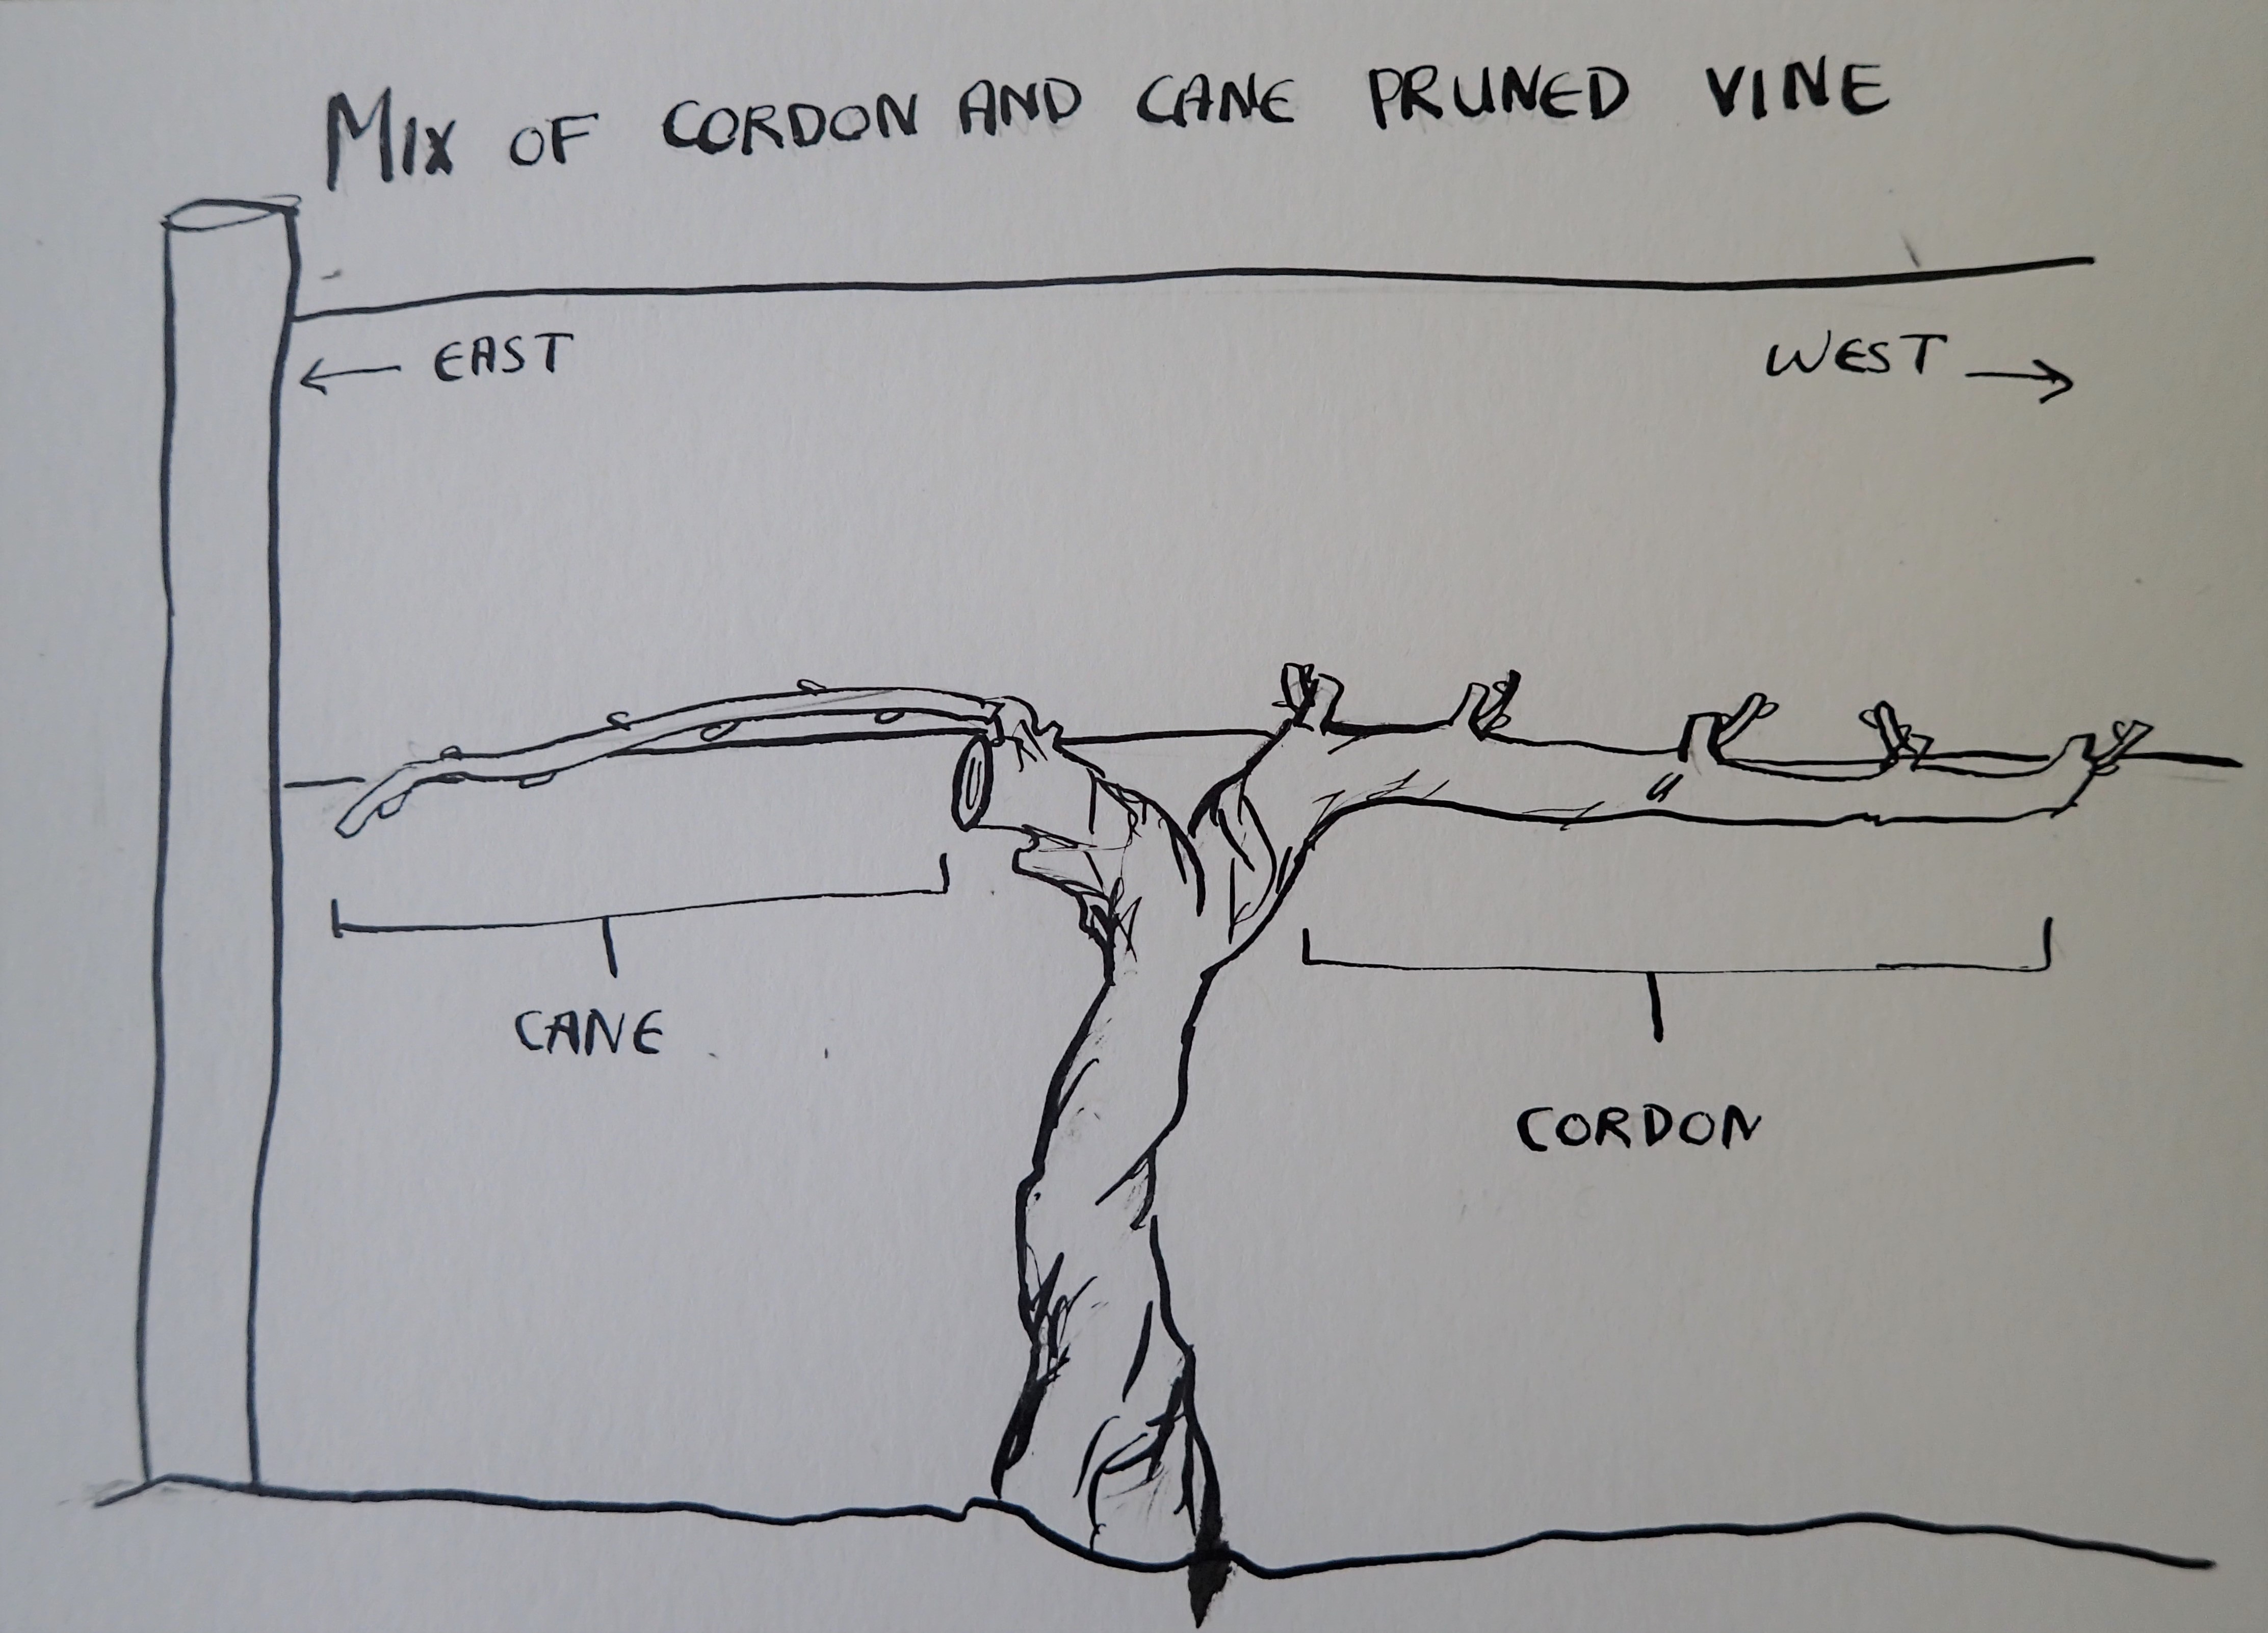 MIX OF CORDON AND CANE PRUNED VINE
← EAST
WEST →
CANE
CORDON